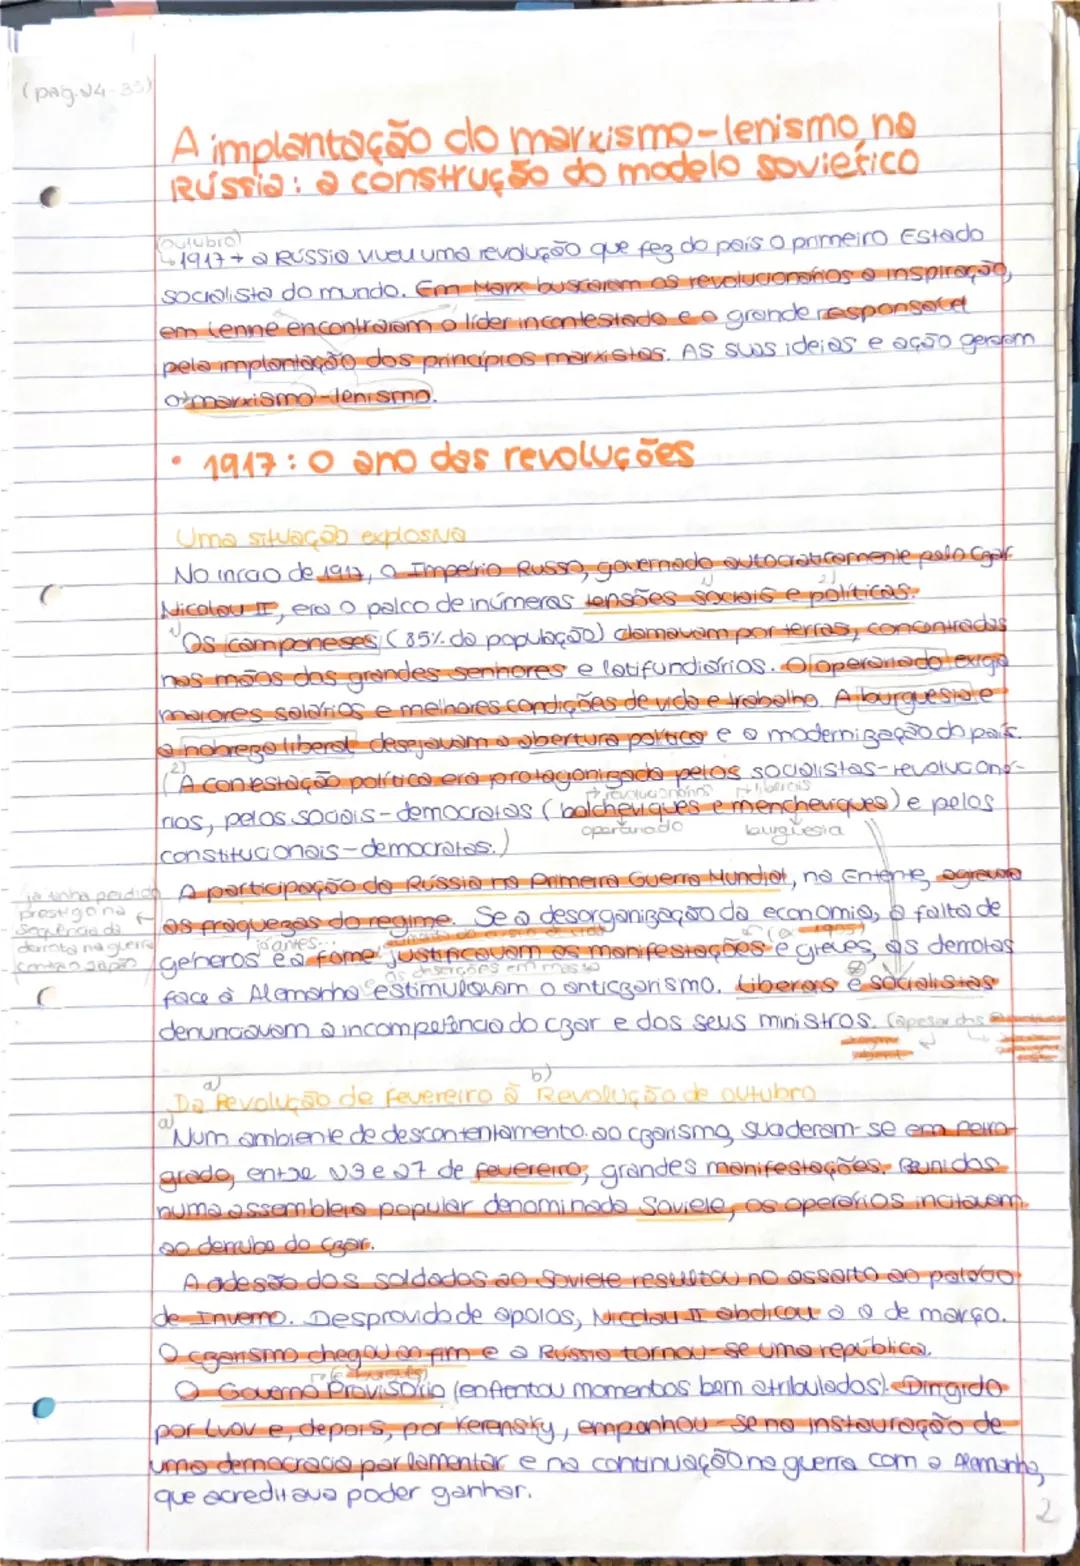 (pág. 24-33)
A implantação do marxismo-lenismo na
Rússia: a construção do modelo soviético
(outubro)
↳ 1917 → a Rússia viveu uma revolução que fez do país o primeiro Estado
socialista do mundo. Em Marx buscaram os revolucionários a inspiração,
em Lenine encontraram o líder incontestado e o grande responsável
pela implantação dos princípios marxistas. As suas ideias e ação geram
o marxismo-lenismo.
• 1917: O ano das revoluções
Uma situação explosiva
No início de 1917, o Império Russo, governado autocraticamente pelo czar
1) 2)
Nicolau II, era o palco de inúmeras tensões sociais e políticas.
1) Os camponeses (85% da população) clamavam por terras, concentradas
nas mãos dos grandes senhores e latifundiários. O operariado exigia
maiores salários e melhores condições de vida e trabalho. A burguesia e
a nobreza liberal desejavam a abertura política e a modernização do país.
2)
(A conestação política era protagonizada pelos socialistas-revolucioná-
→ revolucionários → liberais
rios, pelos sociais-democratas (bolcheviques e mencheviques) e pelos
operariado burguesia
constitucionais-democratas.)
já tinha perdido
prestígio na
sequência da
derrota na guerra
contra o Japão
A participação da Rússia na Primeira Guerra Mundial, na Entente, agravou
as fraquezas do regime. Se a desorganização da economia, a falta de
já antes... aumento do custo de vida (ex: 1905)
géneros e a fome justificavam as manifestações e greves, as derrotas
as deserções em massa
face à Alemanha estimulavam o anticzarismo. Liberais e socialistas
denunciavam a incompetência do czar e dos seus ministros. (apesar das
a) b)
Da Revolução de fevereiro à Revolução de outubro
a) Num ambiente de descontentamento ao czarismo, sucederam-se em Petro-
grado, entre 23 e 27 de fevereiro, grandes manifestações. Reunidos
numa assembleia popular denominada Soviete, os operários incitavam
ao derrube do czar.
A adesão dos soldados ao Soviete resultou no assalto ao palácio
de Inverno. Desprovido de apoios, Nicolau II abdicou a 2 de março.
O czarismo chegou ao fim e a Rússia tornou-se uma república.
O Governo Provisório (enfrentou momentos bem atribulados). Dirigido
por Lvov e, depois, por Kerensky, empanhou-se na instauração de
uma democracia parlamentar e na continuação na guerra com a Alemanha,
que acreditava poder ganhar.
2